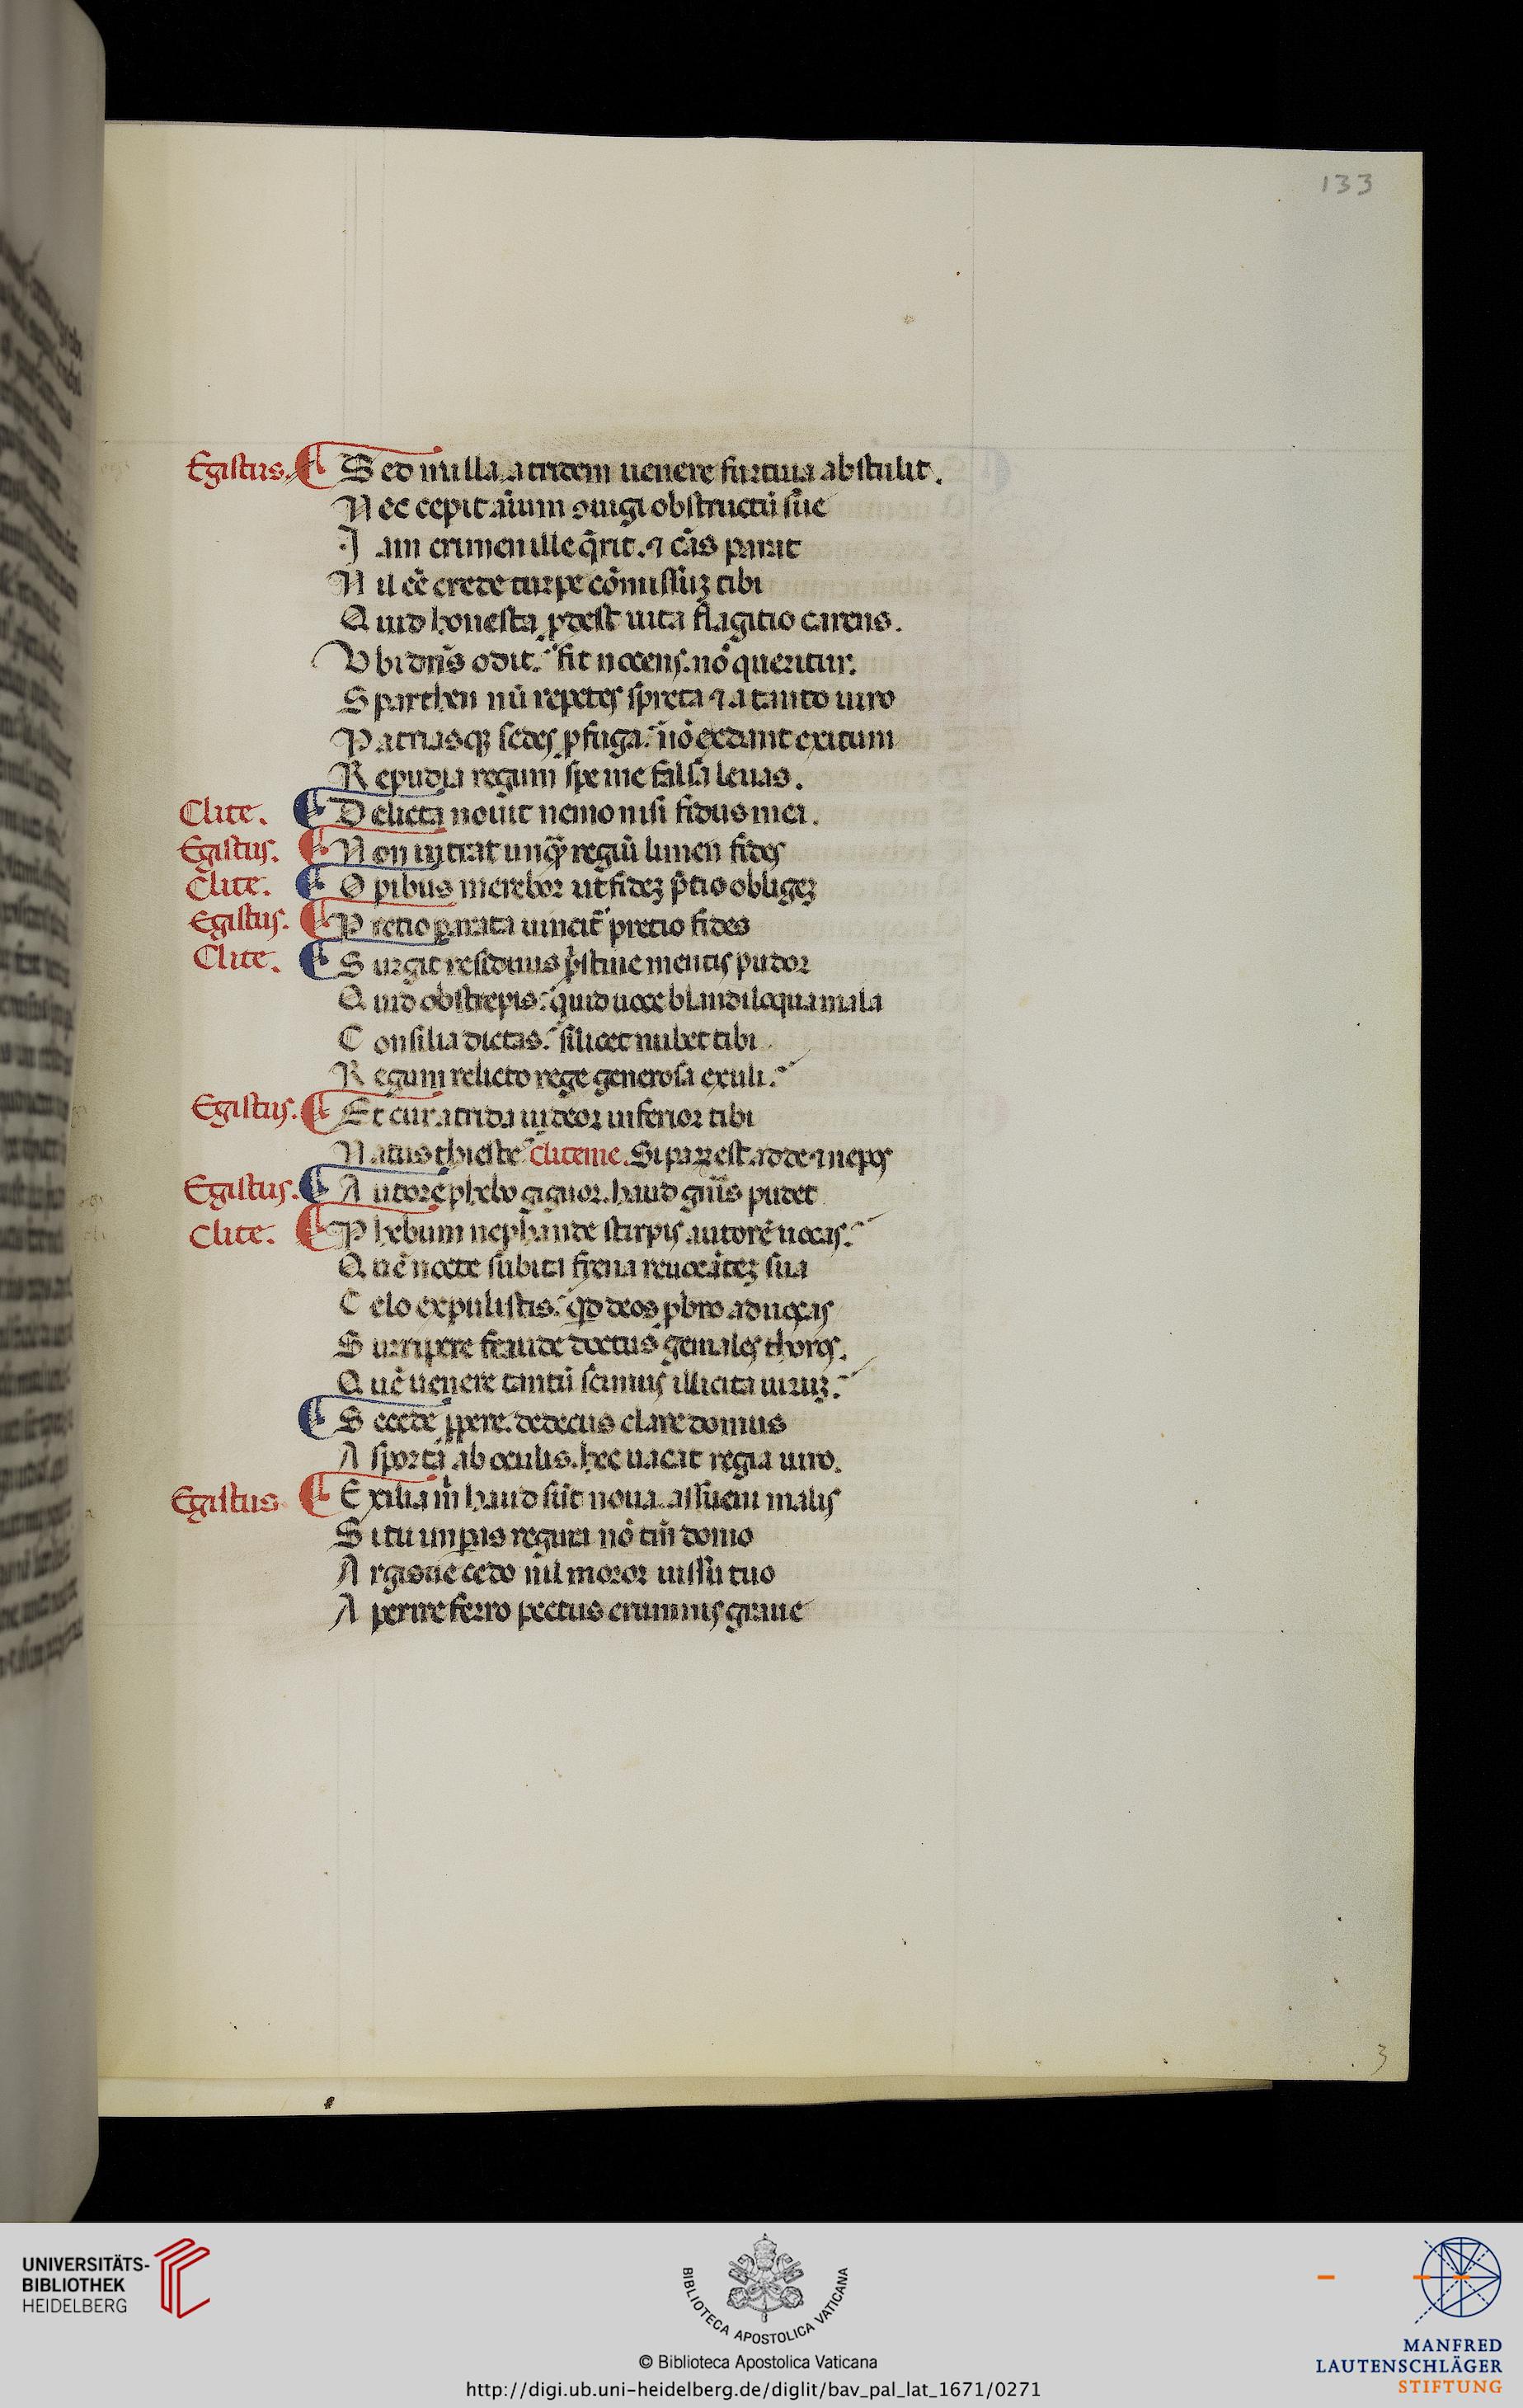 133
Egistus. Sed nulla atridem uenere furtiua abstulit.
Nec cepit aīum ɔiugi obstructū sue
Iam crimen ille q̄rit. ⁊ cās parat
Nil eē crede turpe cōmissūꝫ tibi
Quid honesta ꝓdest uita flagitio carens.
Vbi dn̄s odit. fit nocens. nō queritur.
Sparthen nū repetes spreta ⁊ a tanto uiro
Patriasqꝫ sedes ꝓfuga. nō exdant exitum
Repudia regum spe me falsa leuas.
Clite. Delicta nouit nemo nisi fidus mei.
Egistus. Non intrat unqȝ regiū limen fides
Clite. Opibus merebor ut fideꝫ p̄tio obligeꝫ
Egistus. Pretio ꝑarata uincit̄ pretio fides
Clite. Surgit residuus p̄stine mentis pudor
Quid obstrepis. quid uoce blandiloqua mala
Consilia dictas. silicet nubet tibi
Regum relicto rege generosa exuli.
Egistus. Et cur atrida uideor inferior tibi
Natus thieste cliteme. Si parꝫ est adde ⁊ nepos
Egistus. Autorē phebo gignor. haud gn̄is pudet
Clite. Phebum nephande stirpis autorē uocas.
Quē nocte subita frena reuocāteꝫ sua
Celo expulistis. qd̄ deos ꝓbro aduocas
Surripere fraude doctus geniales thoros.
Quē uenere tantū scimus illicita uiruꝫ.
Secede ꝓpere. dedecus clare domus
Asporta ab oculis. hec uacat regia uiro.
Egistus Exilia m̄ haud sūt noua. assueui malis
Si tu imꝑas regina nō tm̄ domo
Argisue cedo nil moror iussu tuo
Aperire ferro pectus erumnis graue
3
UNIVERSITÄTS-
BIBLIOTHEK
HEIDELBERG
BIBLIOTECA APOSTOLICA VATICANA
© Biblioteca Apostolica Vaticana
http://digi.ub.uni-heidelberg.de/diglit/bav_pal_lat_1671/0271
MANFRED
LAUTENSCHLÄGER
STIFTUNG